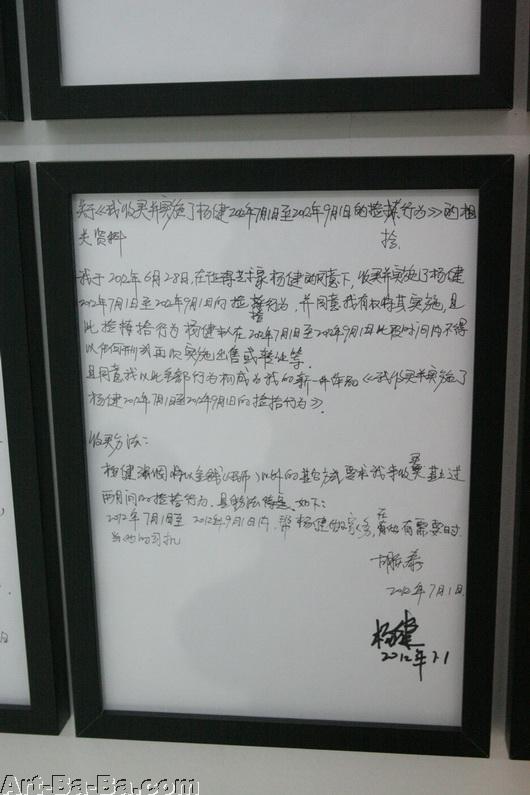 关于《我收买并实施了杨健2012年7月1日至2012年9月1日的捡拾行为》的相
关资料
我于2012年6月28日,在征得艺术家杨健的同意下,收买并实施了杨健
2012年7月1日至2012年9月1日的捡拾行为,并同意我有权将其实施,且
此捡拾行为杨健本人在2012年7月1日至2012年9月1日此段时间内不得
以任何形式再次实施出售或转让等.
且同意我以此全部行为构成为我的新一件作品《我收买并实施了
杨健2012年7月1日至2012年9月1日的捡拾行为》.
收买方法:
杨健 以金钱(人民币)以外的其它方式要求我来收买其上述
两月间的捡拾行为.具体方法 如下:
2012年7月1日至2012年9月1日内,帮杨健做家务,在他有需要时
当他的司机
2012年7月1日
杨健
2012年7.1
Art-Ba-Ba.com